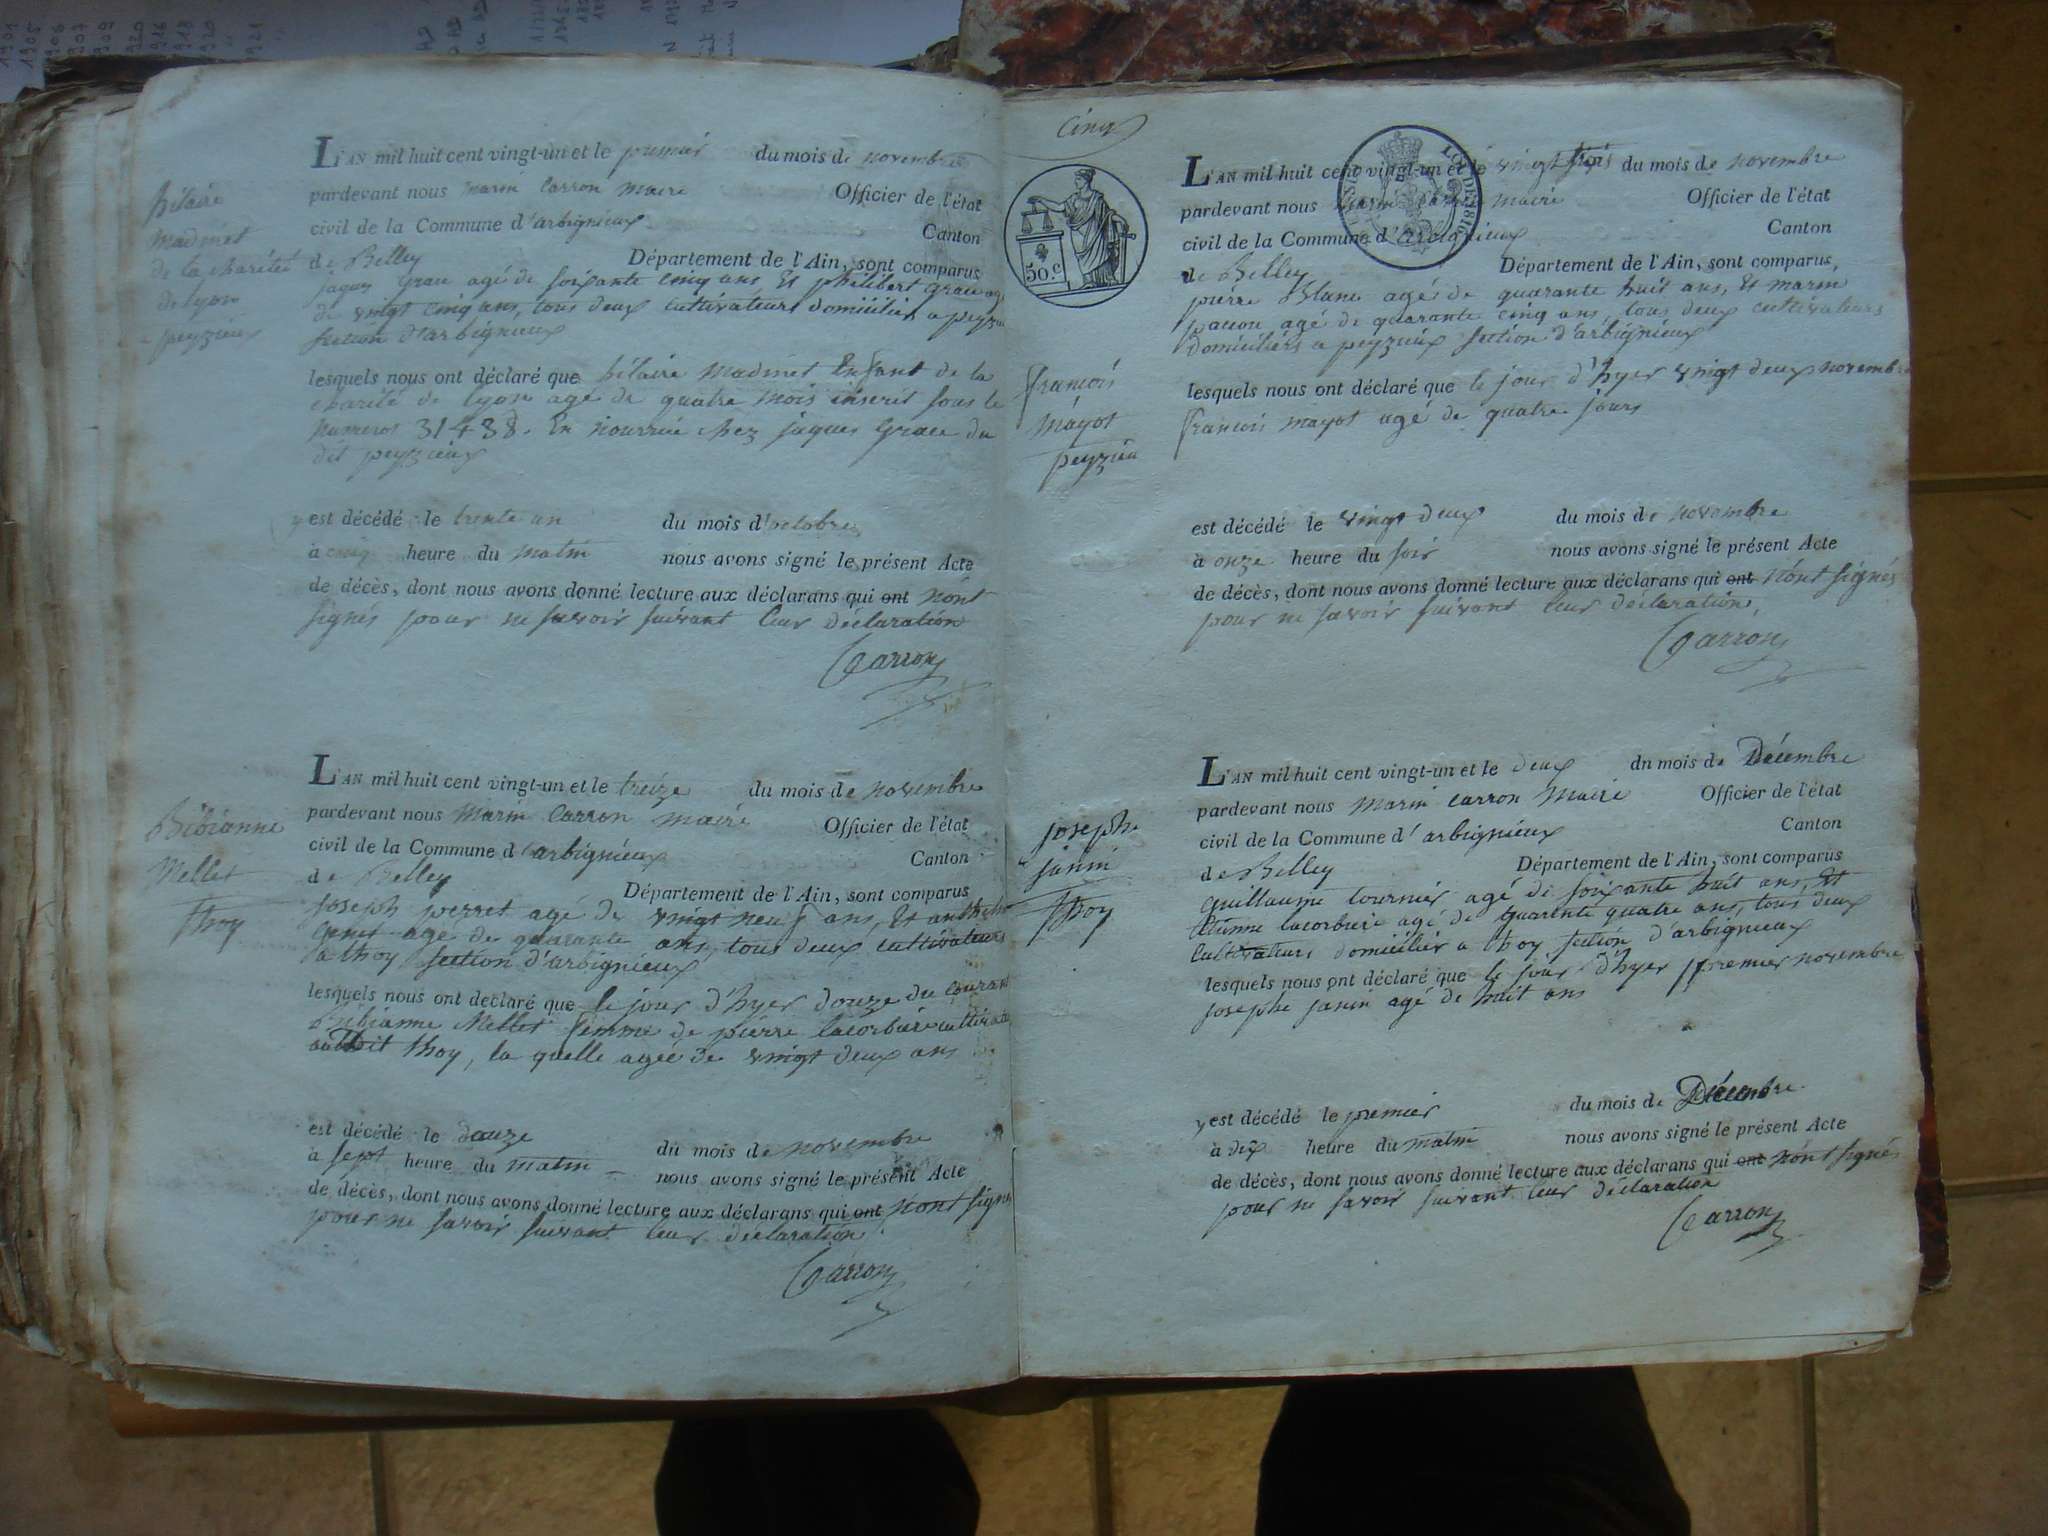 hilaire
madinet
de la charité
de lyon
peyzieux
L'AN mil huit cent vingt-un et le premier du mois de novembre
pardevant nous marin Carron maire Officier de l'état
civil de la Commune d'arbignieux Canton
de Belley Département de l'Ain, sont comparus
agé de soixante cinq ans, Et philibert
de vingt cinq ans, tous deux cultivateurs domiciliés a
section d'arbignieux
lesquels nous ont déclaré que hilaire madinet Enfant de la
charité de lyon agé de quatre mois inscrit sous le
numeros 31438. En nourrice chez jaques du
dit peyzieux
y est décédé le trente un du mois d'octobre
à cinq heure du matin nous avons signé le présent Acte
de décès, dont nous avons donné lecture aux déclarans qui ont n'ont
signés pour ne savoir suivant leur déclaration
Carron
Bibianne
Mellet
thoy
L'AN mil huit cent vingt-un et le treize du mois de novembre
pardevant nous Marin Carron maire Officier de l'état
civil de la Commune d'arbignieux Canton
de Belley Département de l'Ain, sont comparus
joseph perret agé de vingt neuf ans, Et
agé de quarante ans, tous deux cultivateurs
a thoy section d'arbignieux
lesquels nous ont déclaré que le jour d'hyer douze du courant
Bibianne Mellet femme de pierre lacorbière
thoy, la quelle agée de vingt deux ans
est décédé le douze du mois de novembre
à sept heure du matin nous avons signé le présent Acte
de décès, dont nous avons donné lecture aux déclarans qui ont n'ont signés
pour ne savoir suivant leur déclaration.
Carron
Cinq
50 c
LOI DE 1816
françois
mayot
peyzieu
L'AN mil huit cent vingt-un et le vingt trois du mois de novembre
pardevant nous marin Carron maire Officier de l'état
civil de la Commune d'arbignieux Canton
de Belley Département de l'Ain, sont comparus,
pierre Blanc agé de quarante huit ans, Et marin
agé de quarante cinq ans, tous deux cultivateurs
domiciliés a peyzieux section d'arbignieux
lesquels nous ont déclaré que le jour d'hyer vingt deux novembre
françois mayot agé de quatre jours
est décédé le vingt deux du mois de novembre
à onze heure du soir nous avons signé le présent Acte
de décès, dont nous avons donné lecture aux déclarans qui ont n'ont signés
pour ne savoir suivant leur déclaration,
Carron
josephe
janin
thoy
L'AN mil huit cent vingt-un et le deux dn mois de Décembre
pardevant nous Marin Carron Maire Officier de l'état
civil de la Commune d'arbignieux Canton
de Belley Département de l'Ain, sont comparus
guillaume tournier agé de soixante huit ans, Et
Etienne lacorbière agé de quarente quatre ans, tous deux
cultivateurs domiciliés a thoy section d'arbignieux
lesquels nous ont déclaré que le jour d'hyer premier novembre
josephe janin agé de huit ans
y est décédé le premier du mois de Décembre
à dix heure du matin nous avons signé le présent Acte
de décès, dont nous avons donné lecture aux déclarans qui ont n'ont signés
pour ne savoir suivant leur déclaration
Carron